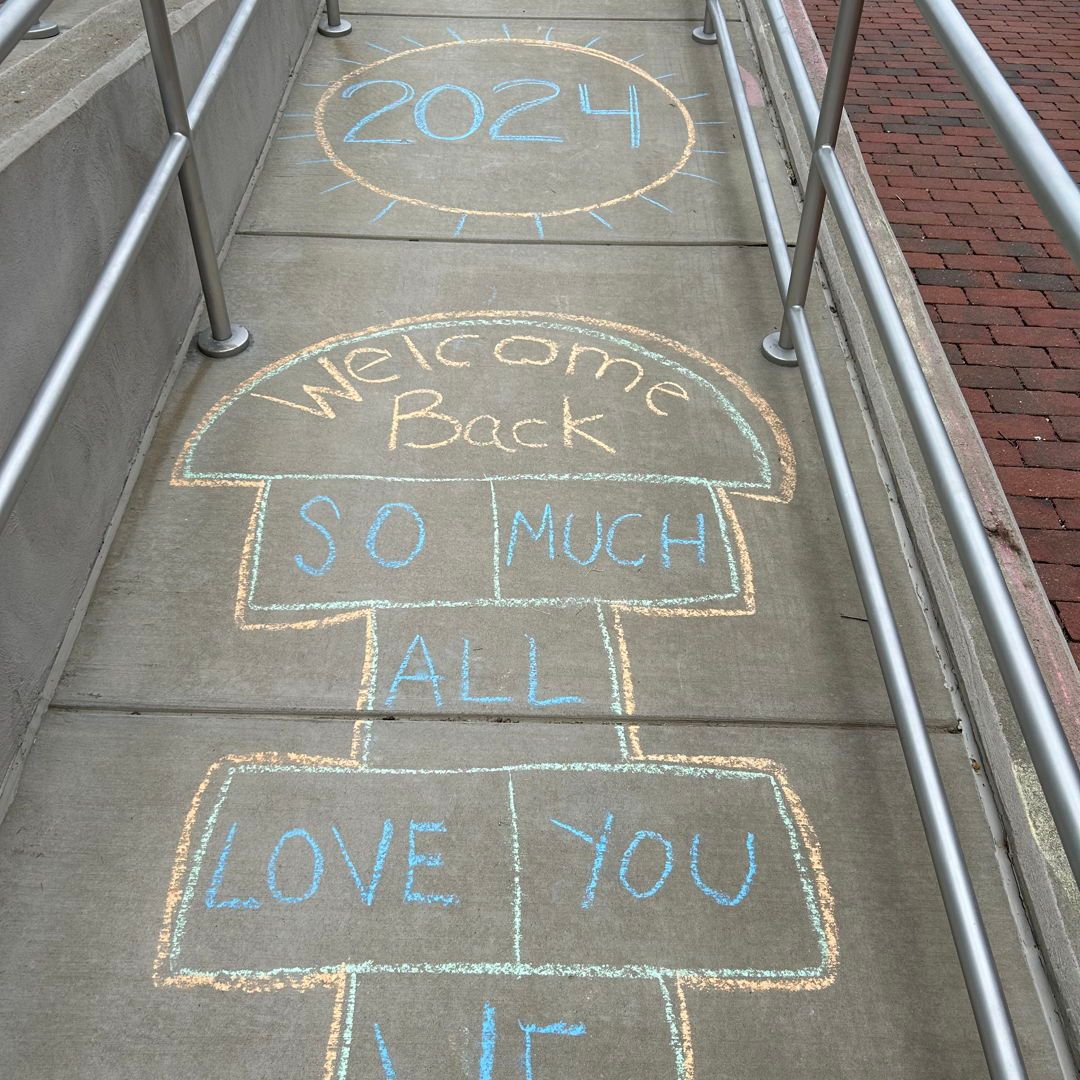 2024
Welcome
Back
SO MUCH
ALL
LOVE YOU